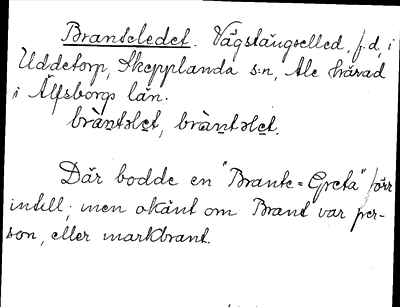 Branteledet. Vägstängselled, f.d., i
Uddetorp, Skepplanda s:n, Ale härad
i Älfsborgs län.
bràntəlet, bràntəlet.
Där bodde en "Brante-Greta" förr
intill; men okänt om Brant var per-
son, eller markbrant.